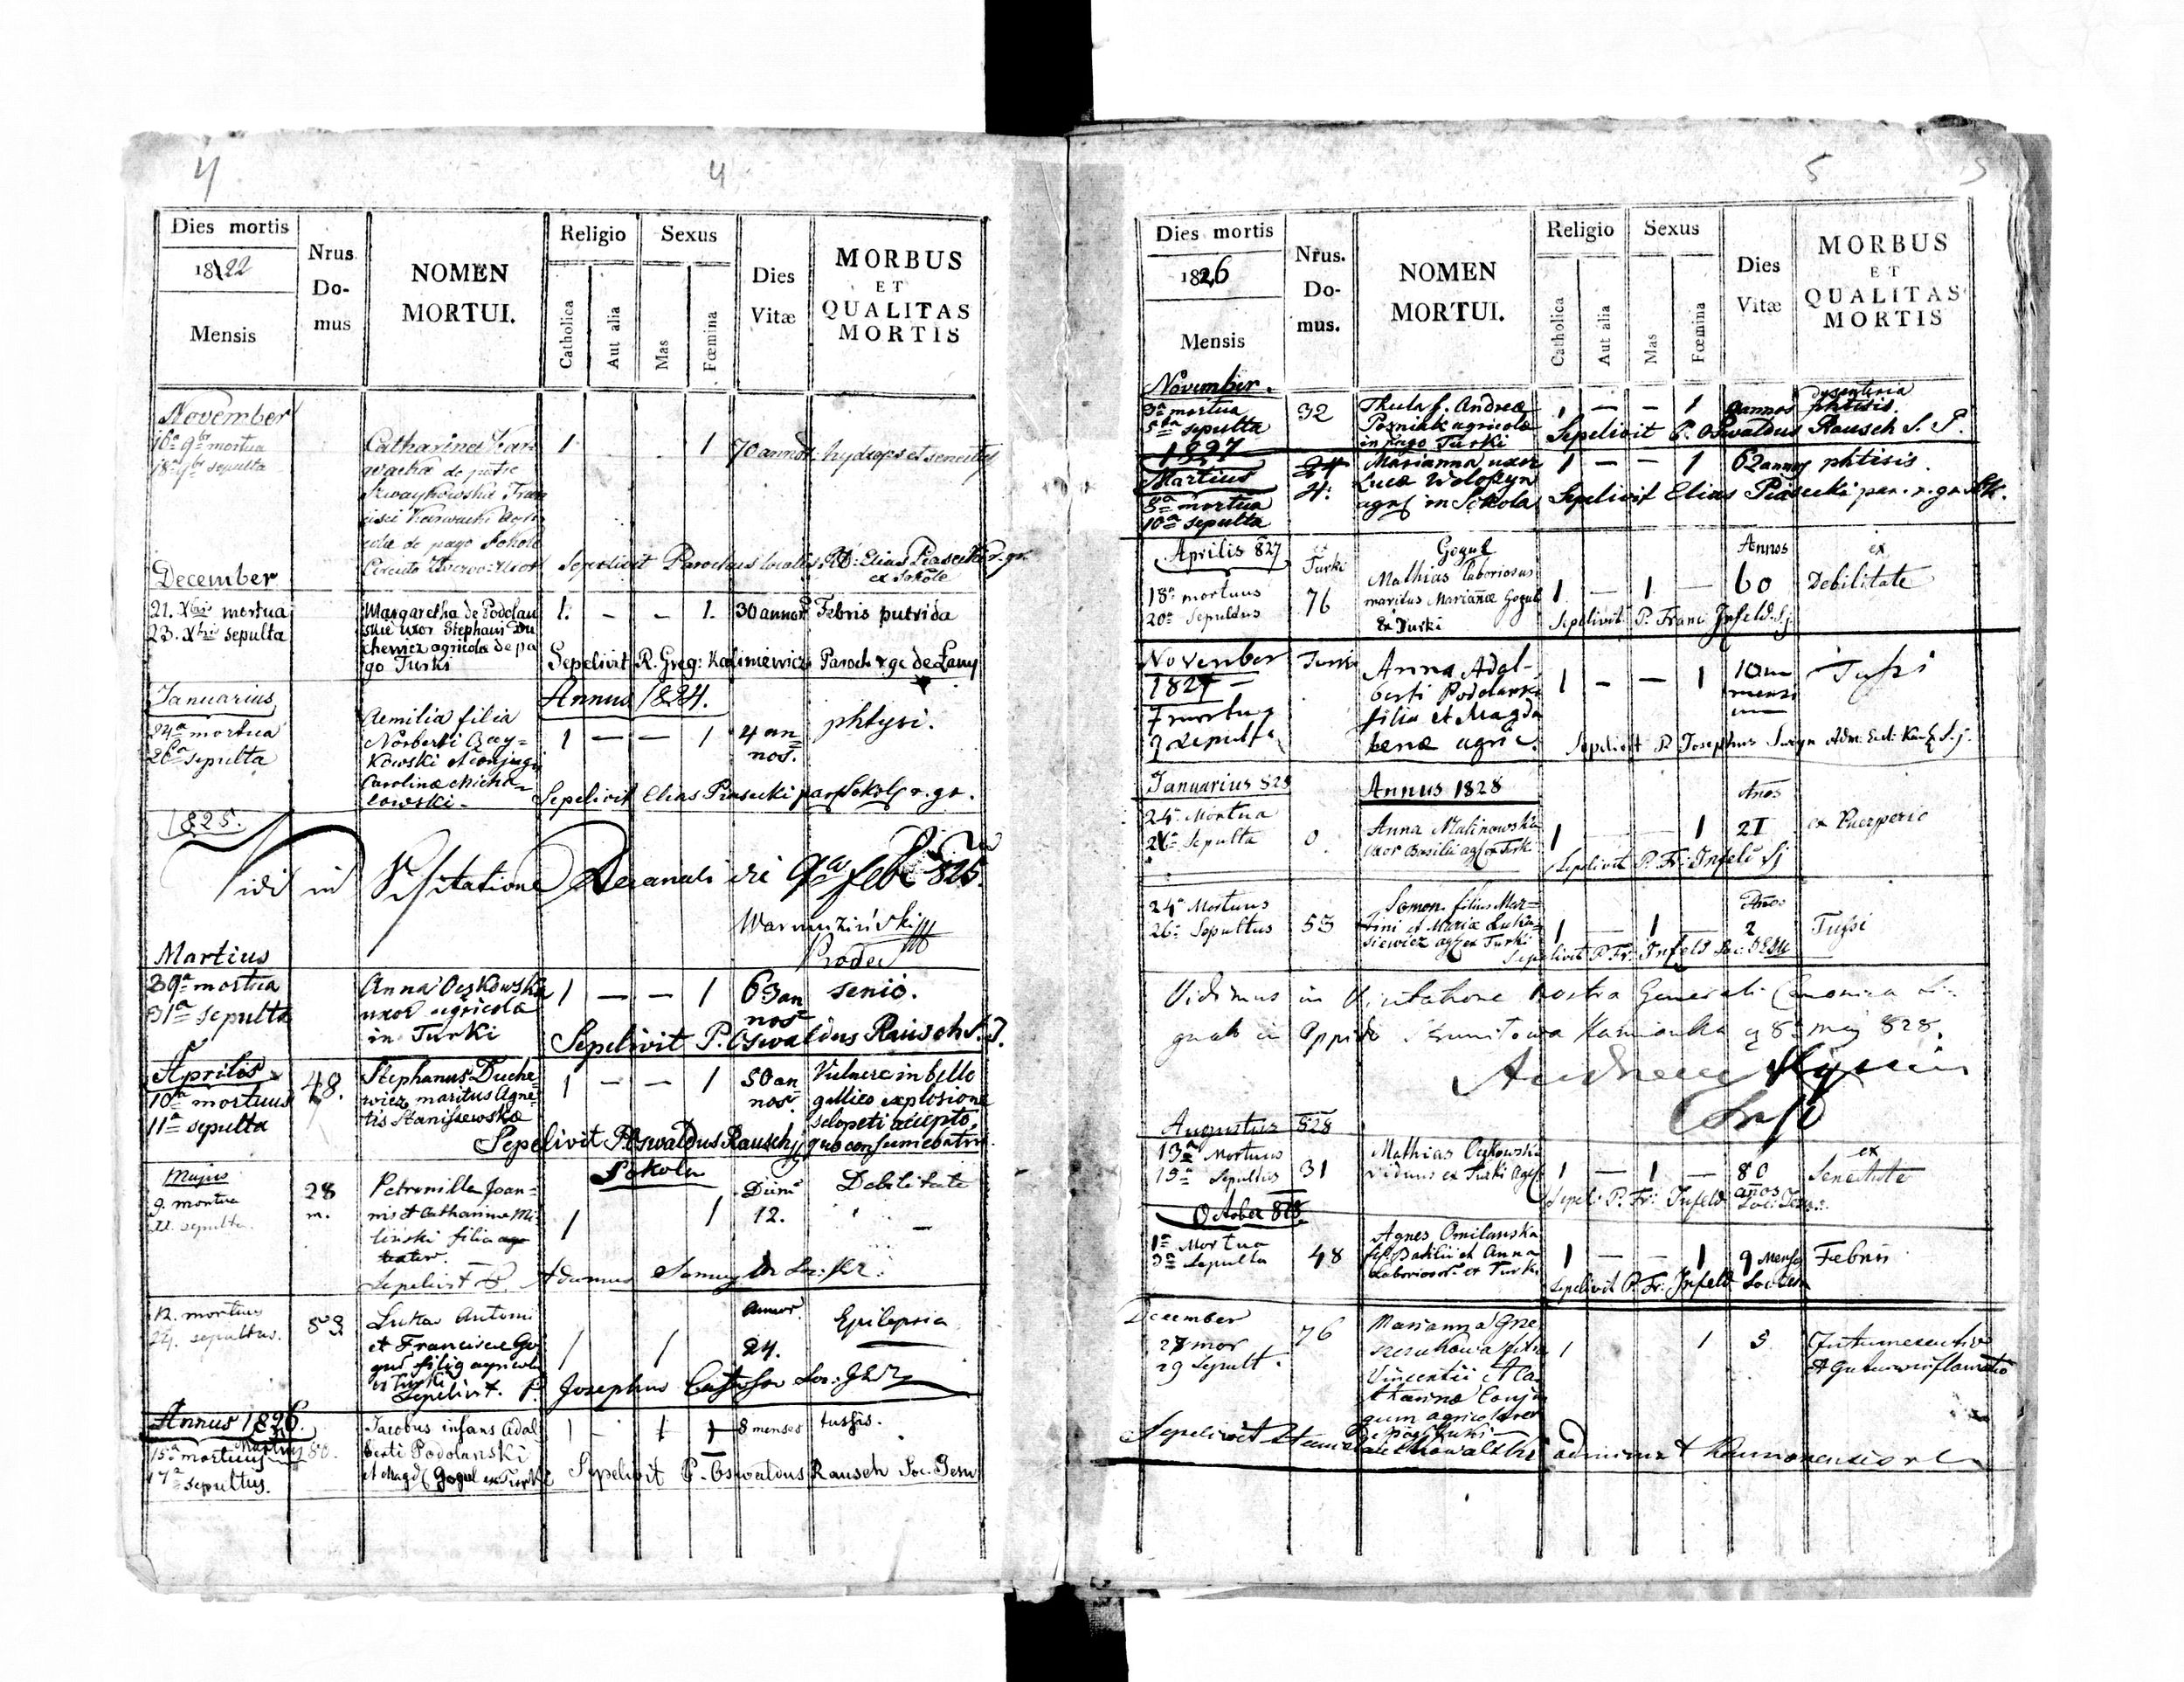 4
4
Dies mortis
1822
Mensis
Nrus
Do-
mus
NOMEN
MORTUI.
Religio
Catholica
Aut alia
Sexus
Mas
Fœmina
Dies
Vitæ
MORBUS
ET
QUALITAS
MORTIS
November
16a 9br mortua
18a 9br sepulta
Catharina Kar
wacka de patre
cisci Karwacki Agri
colæ de pago Sokole
1 1 70 annor. hydrops et senectus
Sepelivit Parochus localis RD: Elias Piasecki r. gr.
ex Sokole
December
21. Xbris mortua
23. Xbris sepulta
Margaretha de Podolań
skie uxor Stephani Du
chewicz agricolæ de pa
go Turki
1. – – 1. 30 annor Febris putrida
Sepelivit R. Greg: Kaliniewicz Paroch r. gr. de Łany
Annus 1824.
Januarius
24a mortua
26a sepulta
Aemilia filia
Norberti Czay-
kowski et conjugis
Carolinæ Micha-
lowski-
1 — — 1 4 an
nos.
phtysi.
Sepelivit Elias Piasecki par Sokoł r. gr.
1825.
Vidi in Visitatione Decanali die 9a Feb 825.
Warmuziński
Prodec
Martius
29a mortua
31a sepulta
Anna Oczkowska
uxor agricolæ
in Turki
1 — — 1 63 an
nos
senio.
Sepelivit P. Oswaldus Rausch S. J.
Aprilis
10a mortuus
11a sepulta
48.
Stephanus Duche-
wicz maritus Agne-
tis Staniszewskæ
1 — — 1 50 an
nos
Vulnere in bello
gallico explosione
sclopeti accepto,
quo consumebatur.
Sepelivit P. Oswaldus Rausch
Sokola
Majus
9. mortua
11. sepulta.
28
m.
Petronilla Joan-
nis et Catharinæ Mi-
liński filia
Dierum
1 1 12.
Debilitate
Sepelivit P. Adamus
12. mortuus
14. sepultus.
53
Lukas Antoni
et Franciscæ Go
gul filius agricolæ
ex Turki
Annor
1 1 24.
Epilepsia
Sepelivit. P. Josephus
Annus 1826.
Martius
15a mortuus
17a sepultus.
80.
Jacobus infans Adal
berti Podolanski
et Magd Gogul ex Turki
1 - 1 + 8 menses tussis.
Sepelivit P. Oswaldus Rausch Soc. Jesu
5
5
Dies mortis
1826
Mensis
Nrus.
Do-
mus.
NOMEN
MORTUI.
Religio
Catholica
Aut alia
Sexus
Mas
Fœmina
Dies
Vitæ
MORBUS
ET
QUALITAS
MORTIS
November.
3a mortua
5ta sepulta
32
Thecla f. Andreæ
Pozniak agricolæ
in pago Turki
1 — — 1 annos
dysenteria
phtisis.
Sepelivit P. Oswaldus Rausch S. J.
1827
Martius
8a mortua
10a sepulta
4.
Marianna uxor
Lucæ Wołoszyn
agr in Sokola
1 — — 1 62 annos phtisis.
Sepelivit Elias Piasecki par. r. gr.
Aprilis 827
18a mortuus
20a Sepultus
ex
Turki
76
Gogul
Mathias laboriosus
maritus Mariañæ Gogul
Ex Turki
Annos
1 - 1 — 60
ex
Debilitate
Sepelivit P. Franc Infeld S.j.
November
1827 –
7 mortua
9 Sepulta
Turki
Anna Adal-
berti Podolanski
filia et Magda
lenæ agric.
1 - — 1 10 m
mensi
um
Tussi
Sepelivit P. Josephus
Januarius 828
Annus 1828
24a Mortua
26a Sepulta
0.
Anna Malinowska
Uxor Basilii agr ex Turki
Años
1 — — 1 21
ex Puerperio
Sepelivit P. Fr: Infeld Sj
24a Mortuus
26a Sepultus
53
Symon filius Mar-
tini et Mariæ Luka-
siewicz agr ex Turki
Años
1 — 1 — 2
Tussi
Sepelivit P. Fr: Infeld Soc. JEsu
Vidimus in Visitatione nostra Generali Canonica
in Oppido Strumilowa Kamionka 8a maj 828.
Augustus 828
13a Mortuus
15a Sepultus
31
Mathias Oczkowski
viduus ex Turki Agr
1 — 1 — 80
años
ex
Senectute
Sepel: P. Fr: Infeld Soc: Jesu.
October 828
1a Mortua
3a Sepulta
48
Agnes Omilanska
fil. Basilii et Anna
Laborios ex Turki
1 — — 1 9 Mense
Febris
Sepelivit P. Fr. Infeld Soc Jesu
December
27 mor
29 Sepult.
76
Marianna
filia
Vincentii et Ca
tharinæ Conju
gum agricolarum
De pago Turki
1 1 3
Sepelivit